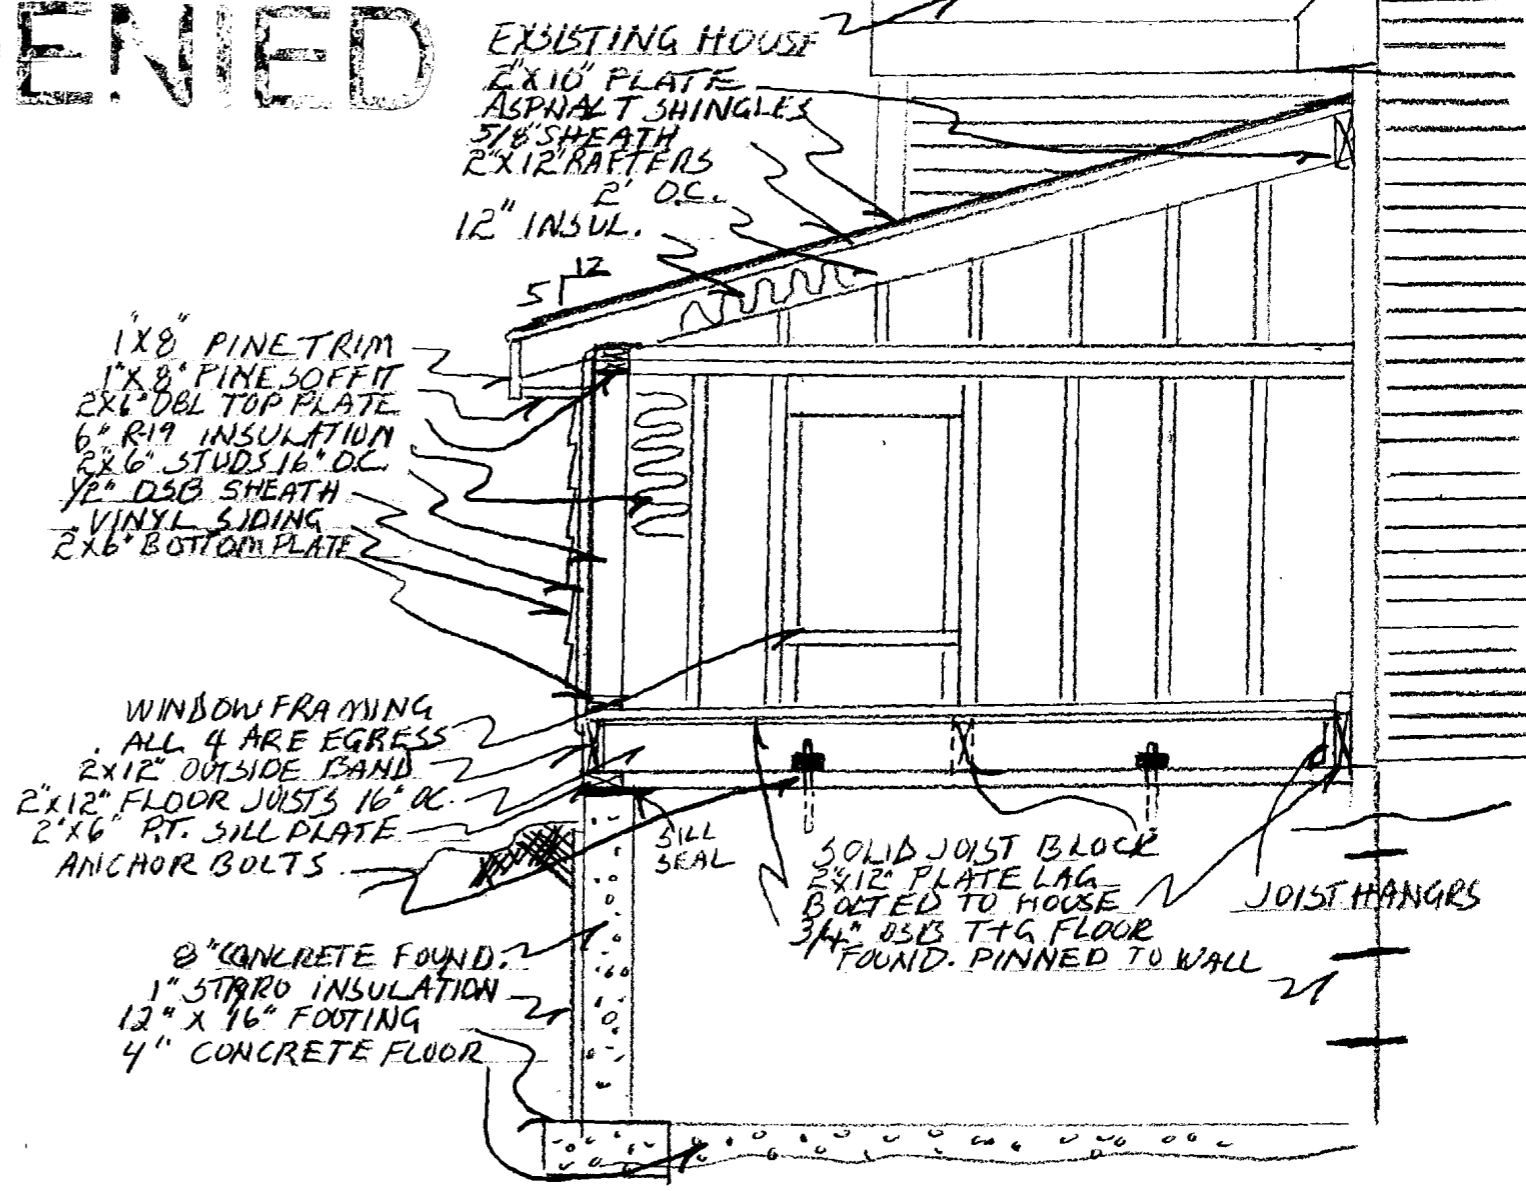 ENIED
EXSISTING HOUSE
2"X10" PLATE
ASPHALT SHINGLES
5/8" SHEATH
2"X12" RAFTERS
2' O.C.
12" INSUL.
12
5
1"X8" PINE TRIM
1"X8" PINE SOFFIT
2X6" DBL TOP PLATE
6" R-19 INSULATION
2X6" STUDS 16" O.C.
1/2" OSB SHEATH
VINYL SIDING
2X6" BOTTOM PLATE
WINDOW FRAMING
ALL 4 ARE EGRESS
2X12" OUTSIDE BAND
2"X12" FLOOR JOISTS 16" OC.
2"X6" P.T. SILL PLATE
ANCHOR BOLTS
SILL
SEAL
SOLID JOIST BLOCK
2"X12" PLATE LAG
BOLTED TO HOUSE
3/4" OSB T+G FLOOR
FOUND. PINNED TO WALL
JOIST HANGRS
8" CONCRETE FOUND.
1" STYRO INSULATION
12" X 16" FOOTING
4" CONCRETE FLOOR